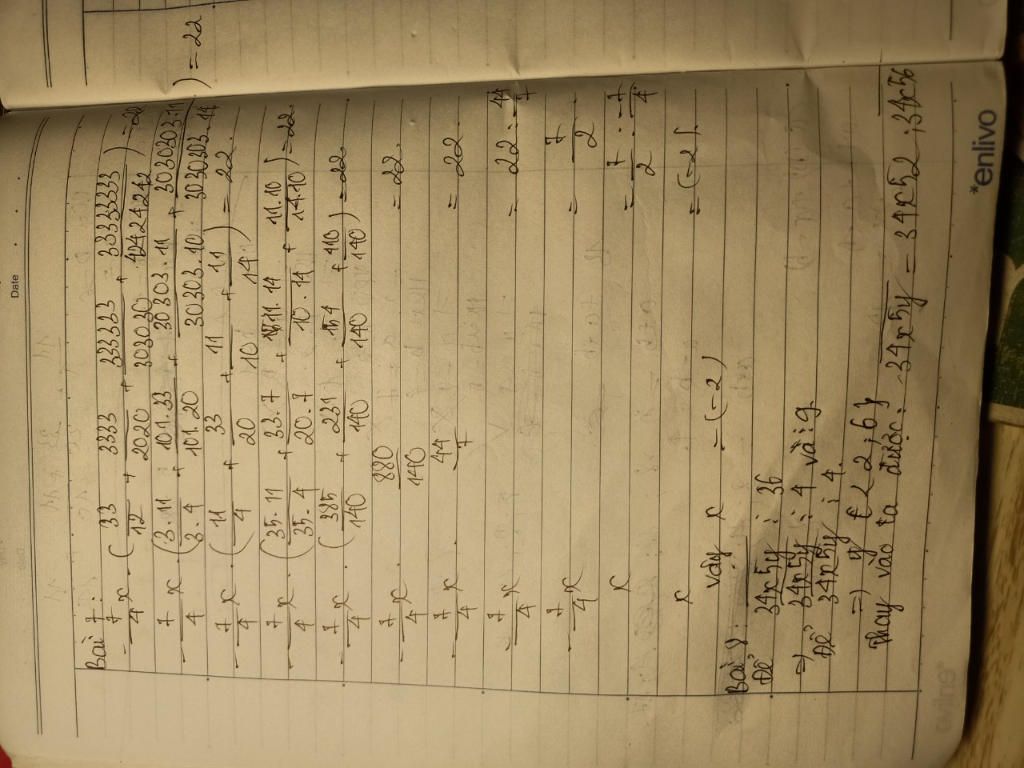 Date
Bài 7:
-7/4 x . (33/12 + 3333/2020 + 333333/303030 + 33333333/42424242) = 22
-7/4 x . (3.11/3.4 + 101.33/101.20 + 30303.11/30303.10 + 3030303.11/3030303.14) = 22
-7/4 x . (11/4 + 33/20 + 11/10 + 11/14) = 22
-7/4 x . (35.11/35.4 + 33.7/20.7 + 11.14/10.14 + 11.10/14.10) = 22
-7/4 x . (385/140 + 231/140 + 154/140 + 110/140) = 22
-7/4 x . 880/140 = 22
-7/4 x . 44/7 = 22
-7/4 x = 22 : 44/7
-7/4 x = 7/2
x = 7/2 : -7/4
x = (-2)
Vậy x = (-2)
Bài 8:
Để 34x5y ⋮ 36
=> 34x5y ⋮ 4 và ⋮ 9
Để 34x5y ⋮ 4
=> y ∈ {2; 6}
Thay vào ta được: 34x5y = 34x52; 34x56
*enlivo